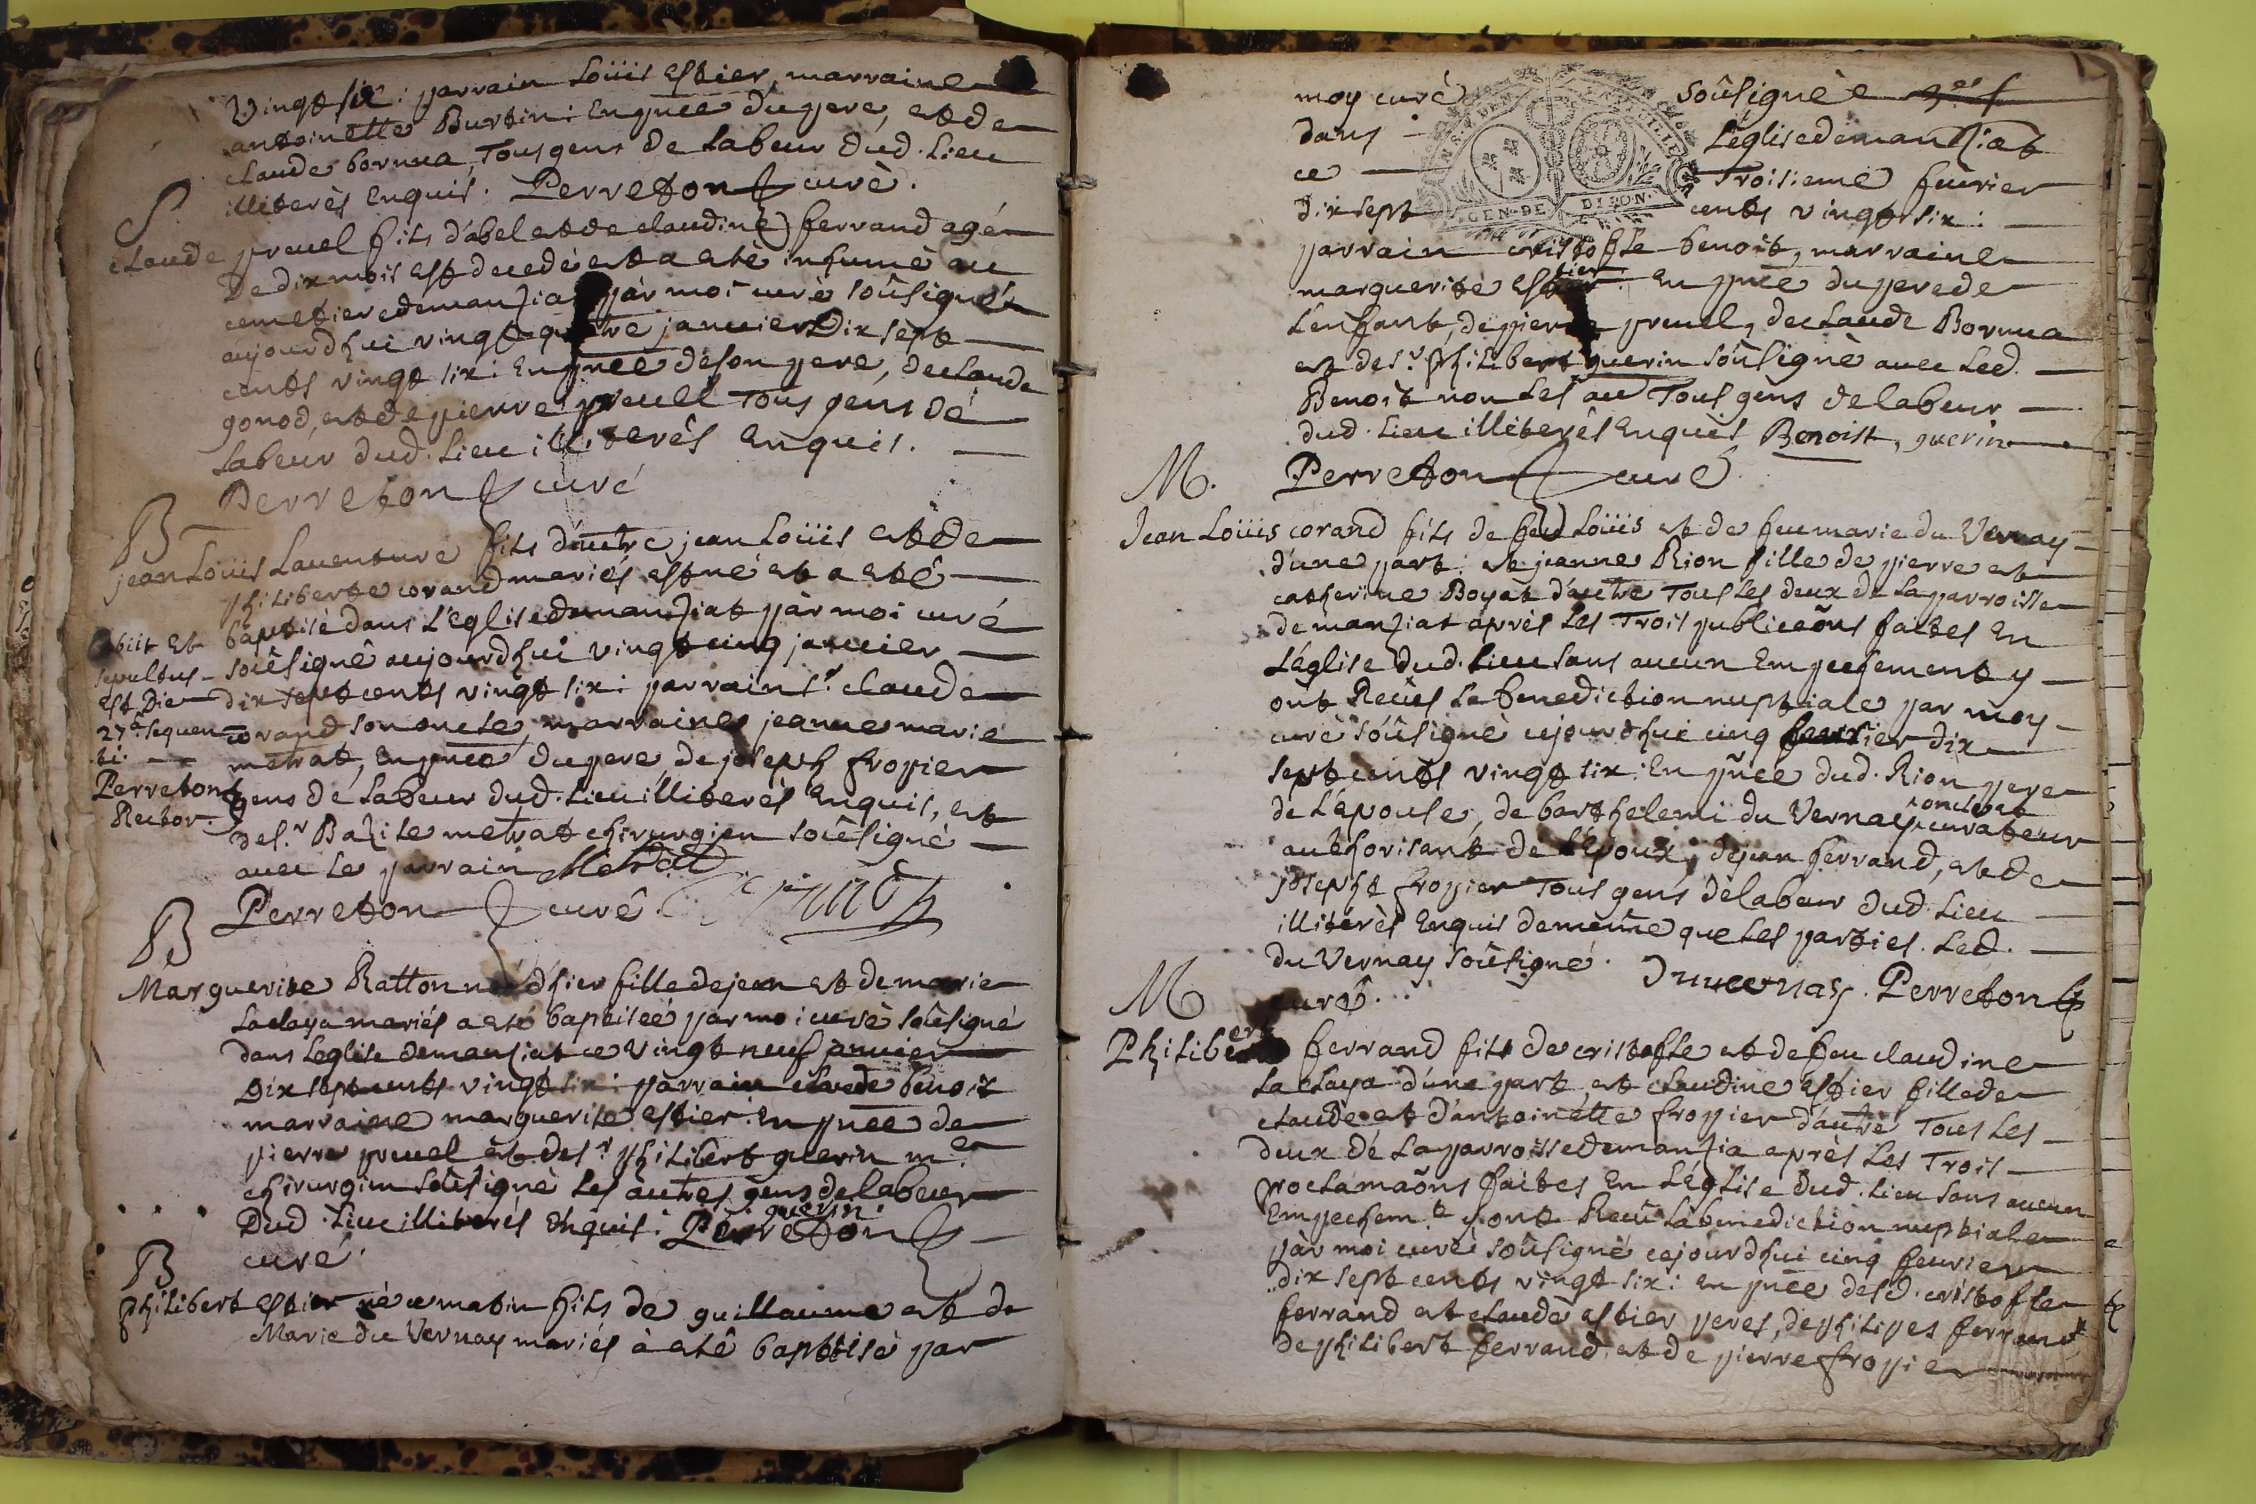 Vingt six : parrain Loüis Estier, marraine
antoinette Burtin : En pñce du pere, et de
claude bornua, Tous gens de Labeur dud. Lieu
illiterés Enquis. Perreton curé.
S.
claude preuel fils d'abel et de claudine ferrand agé
De dix mois est decedé et a esté inhumé au
cemetiere de manziat par moi curé soûsigné
aujourdhui vingt quatre januier Dix sept
cents vingt six : En pñce de son pere, de claude
gonod, et de pierre preuel Tous gens de
Labeur dud. Lieu illiterés Enquis.
Perreton curé
B
jean Loüis Lauenture fils d'autre jean Loüis et de
philiberte corand mariés est né et a esté
baptisé dans L'Eglise de manziat par moi curé
soûsigné aujourdhui vingt cinq januier
dix sept cents vingt six : parrain s.r claude
corand son oncle, marraine jeanne marie
metrat, En pñce du pere de joseph fropier
gens de Labeur dud. Lieu illiterés Enquis, et
de s.r Bazile metrat chirurgien soûsigné
auec Le parrain Metrat
Perreton curé
obiit et
sepultus
est Die
27ª sequen
ti.
Perreton
Rector.
B
Marguerite Ratton née d'hier fille de jean et de marie
Laclaya mariés a esté baptisée par moi curé soûsigné
dans Leglise de manziat ce vingt neuf januier
Dix sept cents vingt six : parrain claude benoit
marraine marguerite estier : En pñce de
pierre preuel et de s.r philibert guerin m.e
chirurgien soûsigné Les autres gens de labeur
Dud. Lieu illiterés Enquis : guerin.
Perreton
curé.
B
philibert Estier né ce matin fils de guillaume et de
Marie du Vernay mariés à esté baptisé par
moy curé soûsigné
dans L'eglise de manziat
ce Troisieme feurier
dix sept cents vingt six :
GEN · DE DIJON ·
parrain cristofle benoit, marraine
marguerite Estier En pñce du pere de
L'enfant, de pierre preuel, de claude Bornua
et de s.r philibert guerin soûsigné auec Led.
Benoit non Les au Tous gens de labeur
dud. Lieu illiterés Enquis Benoist, guerin
Perreton curé
M.
Jean Loüis corand fils de feu Loüis et de feu marie du Vernay
d'une part : et jeanne Rion fille de pierre et
catherine Boyat d'autre Tous Les deux de La parroisse
de manziat aprés Les Trois publicaõns faites En
L'église dud. Lieu sans aucun Empechement y
ont Reçus La benediction nuptiale par moy
curé soûsigné cejourdhui cinq feurier dix
sept cents vingt six : En pñce dud. Rion pere
de L'epouse, de barthelemi du Vernay oncle et curateur
authorisant de L'epoux, de jean ferrand, et de
joseph fropier Tous gens de labeur dud. Lieu
illiterés Enquis de meme que Les parties. Led.
du Vernay soûsigné. Duuernay. Perreton
curé.
M
Philibert ferrand fils de cristofle et de feu claudine
La claya d'une part, et claudine Estier fille de
claude et d'antoinette fropier d'autre Tous Les
deux de La parroisse de manzia aprés Les Trois
proclamaõns faites En L'église dud. Lieu sans aucun
Empechem.t y ont Reçû La benediction nuptiale
par moi curé soûsigné cejourdhui cinq feurier
dix sept cents vingt six : En pñce desd. cristofle
ferrand et claude Estier peres, de philipes ferrand
de philibert ferrand, et de pierre fropier